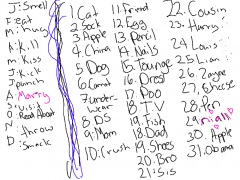 J: Smell
F: eat
M: hug
A: Kill
m: Kiss
J: Kick
J: punch
A: Marry
S: visit
O: Read About
N: throw
D: Smack
1. Cat
2. Sock
3. Apple
4. China
5. Dog
6. Carrot
7. underwear
8. DS
9. Mom
10. Crush
11. Friend
12. Egg
13. Pencil
14. Nails
15. Lounge
16. Dress
17. Poo
18. TV
19. Fish
18. Dad
19. Shoes
20. Bro
21. Sis
22. Cousin
23. Harry
24. Louis
25. Liam
26. Zayne
27. Cheese
28. Pen
29. niall
30. Apple
31. Obama